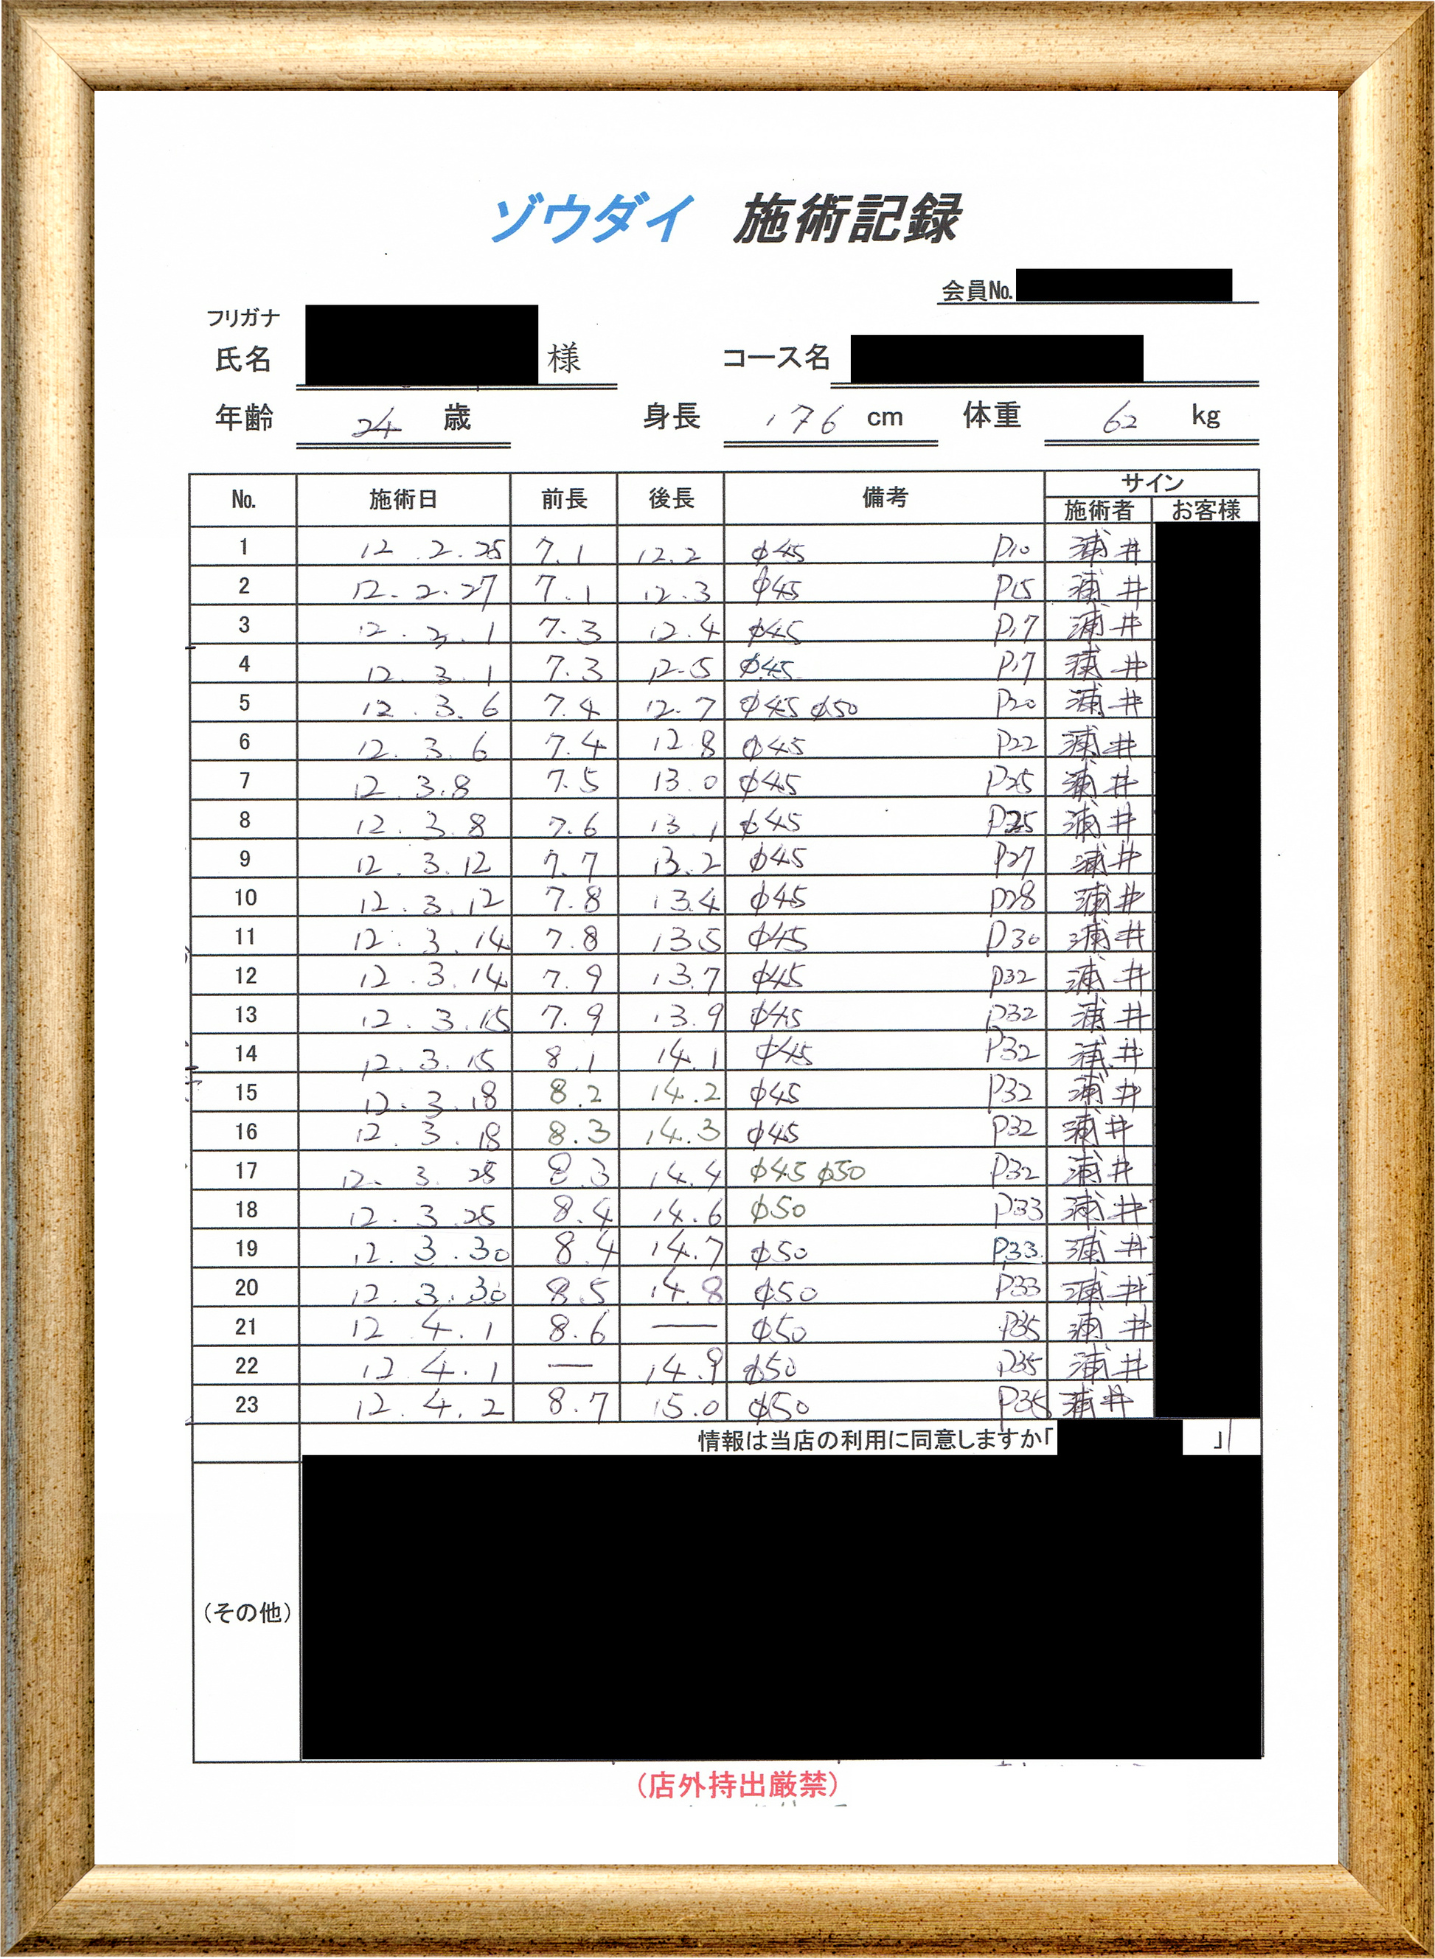 ゾウダイ 施術記録
会員No.
フリガナ
氏名 様 コース名
年齢 24 歳 身長 176 cm 体重 62 kg
No. 施術日 前長 後長 備考 サイン
施術者 お客様
1 12.2.25 7.1 12.2 φ45 P10 浦井
2 12.2.27 7.1 12.3 φ45 P15 浦井
3 12.3.1 7.3 12.4 φ45 P17 浦井
4 12.3.1 7.3 12.5 φ45 P17 浦井
5 12.3.6 7.4 12.7 φ45 φ50 P20 浦井
6 12.3.6 7.4 12.8 φ45 P22 浦井
7 12.3.8 7.5 13.0 φ45 P25 浦井
8 12.3.8 7.6 13.1 φ45 P25 浦井
9 12.3.12 7.7 13.2 φ45 P27 浦井
10 12.3.12 7.8 13.4 φ45 P28 浦井
11 12.3.14 7.8 13.5 φ45 P30 浦井
12 12.3.14 7.9 13.7 φ45 P32 浦井
13 12.3.15 7.9 13.9 φ45 P32 浦井
14 12.3.15 8.1 14.1 φ45 P32 浦井
15 12.3.18 8.2 14.2 φ45 P32 浦井
16 12.3.18 8.3 14.3 φ45 P32 浦井
17 12.3.25 8.3 14.4 φ45 φ50 P32 浦井
18 12.3.25 8.4 14.6 φ50 P33 浦井
19 12.3.30 8.4 14.7 φ50 P33 浦井
20 12.3.30 8.5 14.8 φ50 P33 浦井
21 12 4.1 8.6 — φ50 P35 浦井
22 12.4.1 — 14.9 φ50 P35 浦井
23 12.4.2 8.7 15.0 φ50 P35 浦井
情報は当店の利用に同意しますか「 」
(その他)
(店外持出厳禁)